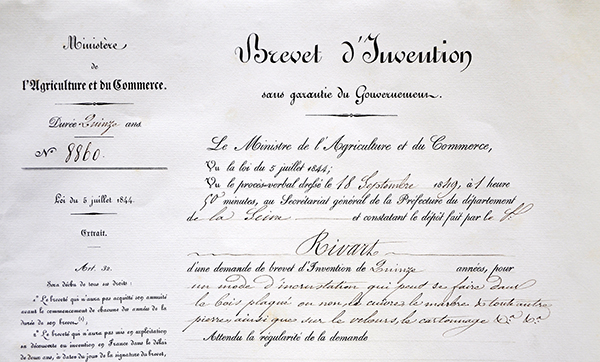 Ministère
de
l'Agriculture et du Commerce.
Durée Quinze ans.
N° 8860.
Loi du 5 juillet 1844.
Extrait.
Art. 32.
Sera déchu de tous ses droits:
1° Le breveté qui n'aura pas acquitté son annuité
avant le commencement de chacune des années de la
durée de son brevet;
2° Le breveté qui n'aura pas mis en exploitation
sa découverte ou invention en France dans le délai
de deux ans, à dater du jour de la signature du brevet,
Brevet d'Invention
sans garantie du Gouvernement.
Le Ministre de l'Agriculture et du Commerce,
Vu la loi du 5 juillet 1844;
Vu le procès-verbal dressé le 18 Septembre 1849, à 1 heure
50 minutes, au Secrétariat général de la Préfecture du département
de la Seine et constatant le dépôt fait par le S.
Rivart
d'une demande de brevet d'Invention de Quinze années, pour
un mode d'incrustation qui peut se faire dans
le bois plaqué ou non, le cuivre, le marbre & toute autre
pierre, ainsi que sur le velours, le cartonnage &a. &a.
Attendu la régularité de la demande